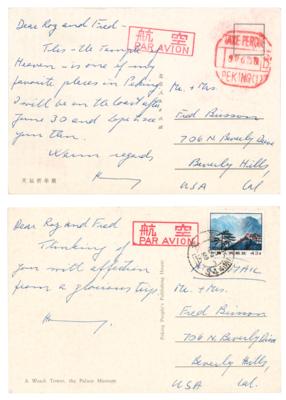 Dear Roz and Fred -
This - the Temple of
Heaven - is one of my
favorite places in Peking
I will be on the coast after
June 30 and hope to see
you then.
Warm regards,
航空
PAR AVION
PEKING
Mr. + Mrs.
Fred Brisson
706 N. Beverly Drive
Beverly Hills,
USA Cal
Dear Roz and Fred
Thinking of
you with affection
from a glorious trip
航空
PAR AVION
Mr. + Mrs.
Fred Brisson
706 N. Beverly Drive
Beverly Hills,
USA Cal.
A Watch Tower, the Palace Museum
Peking People's Publishing House